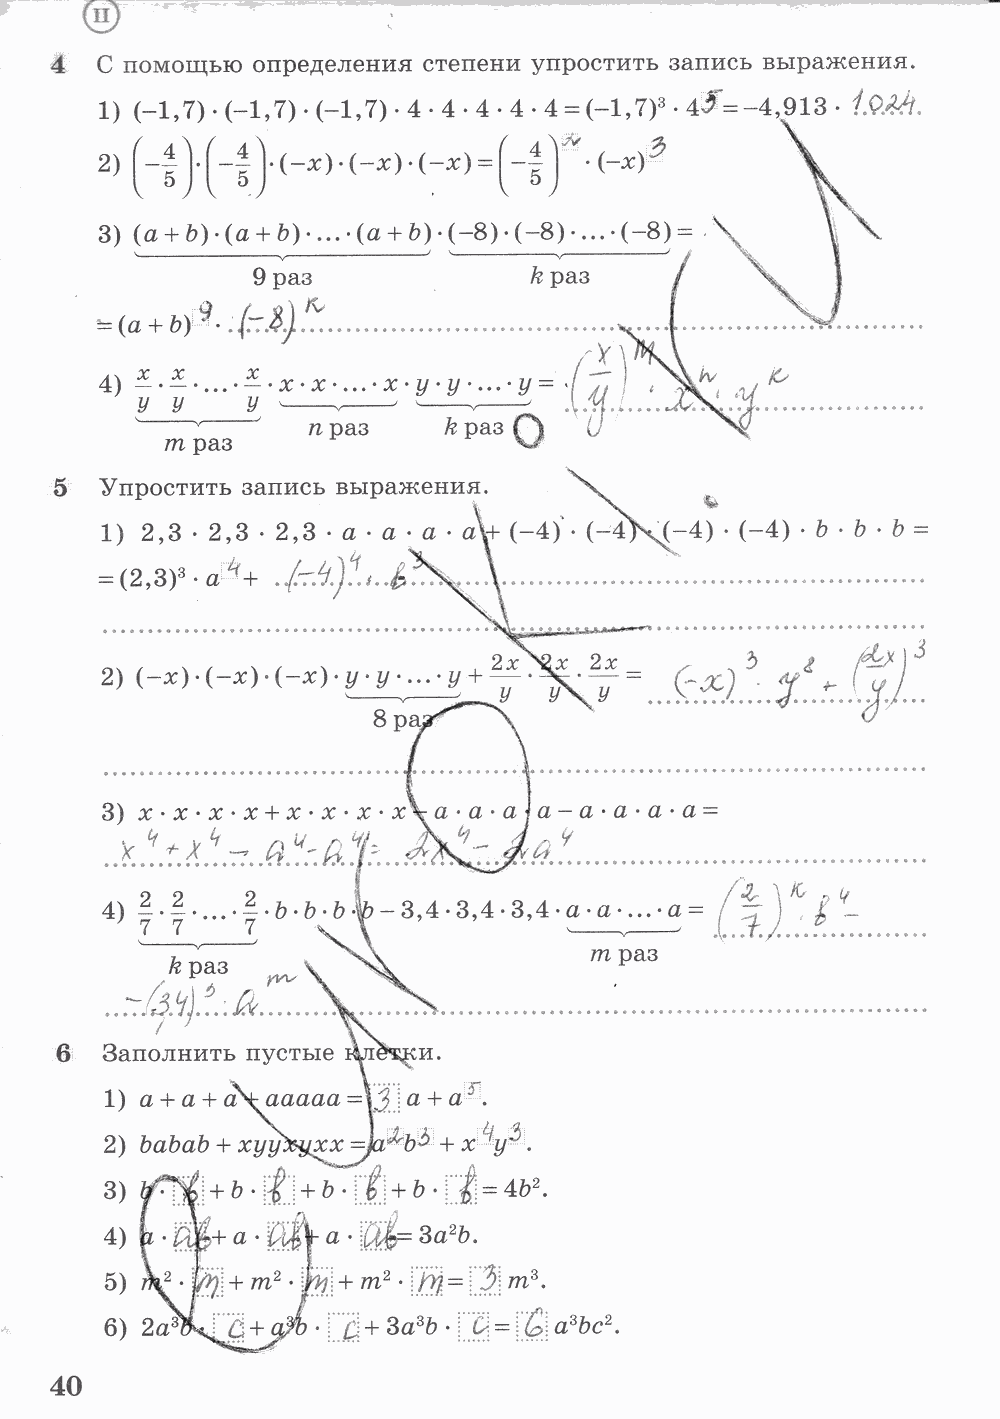 II
4 С помощью определения степени упростить запись выражения.
1) (–1,7) · (–1,7) · (–1,7) · 4 · 4 · 4 · 4 · 4 = (–1,7)³ · 4⁵ = –4,913 · 1024
2) (–4/5) · (–4/5) · (–x) · (–x) · (–x) = (–4/5)² · (–x)³
3) (a + b) · (a + b) · ... · (a + b) · (–8) · (–8) · ... · (–8) =
9 раз k раз
= (a + b)⁹ · (–8)ᵏ
4) x/y · x/y · ... · x/y · x · x · ... · x · y · y · ... · y = (x/y)ᵐ · xⁿ · yᵏ
m раз n раз k раз
5 Упростить запись выражения.
1) 2,3 · 2,3 · 2,3 · a · a · a · a + (–4) · (–4) · (–4) · (–4) · b · b · b =
= (2,3)³ · a⁴ + (–4)⁴ · b³
2) (–x) · (–x) · (–x) · y · y · ... · y + 2x/y · 2x/y · 2x/y = (–x)³ · y⁸ + (2x/y)³
8 раз
3) x · x · x · x + x · x · x · x – a · a · a · a – a · a · a · a =
x⁴ + x⁴ – a⁴ – a⁴ = 2x⁴ – 2a⁴
4) 2/7 · 2/7 · ... · 2/7 · b · b · b · b – 3,4 · 3,4 · 3,4 · a · a · ... · a = (2/7)ᵏ · b⁴ –
k раз m раз
– (3,4)³ · aᵐ
6 Заполнить пустые клетки.
1) a + a + a + aaaaa = 3 a + a⁵.
2) babab + xyyxyxx = a²b³ + x⁴y³.
3) b · b + b · b + b · b + b · b = 4b².
4) a · ab + a · ab + a · ab = 3a²b.
5) m² · m + m² · m + m² · m = 3 m³.
6) 2a³b · c + a³b · c + 3a³b · c = 6 a³bc².
40